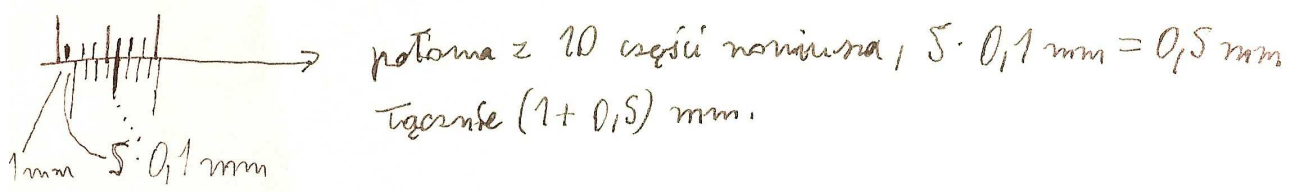 połowa z 10 części noniusza, 5 · 0,1 mm = 0,5 mm
łącznie (1 + 0,5) mm.
1 mm 5 · 0,1 mm